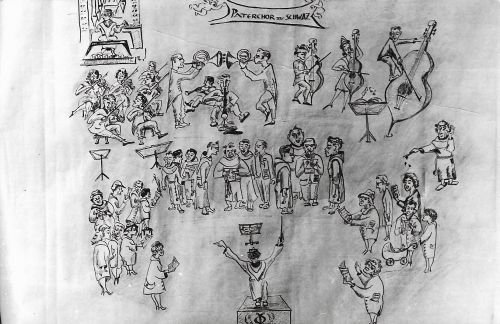 PATERCHOR ZU SCHWAZ